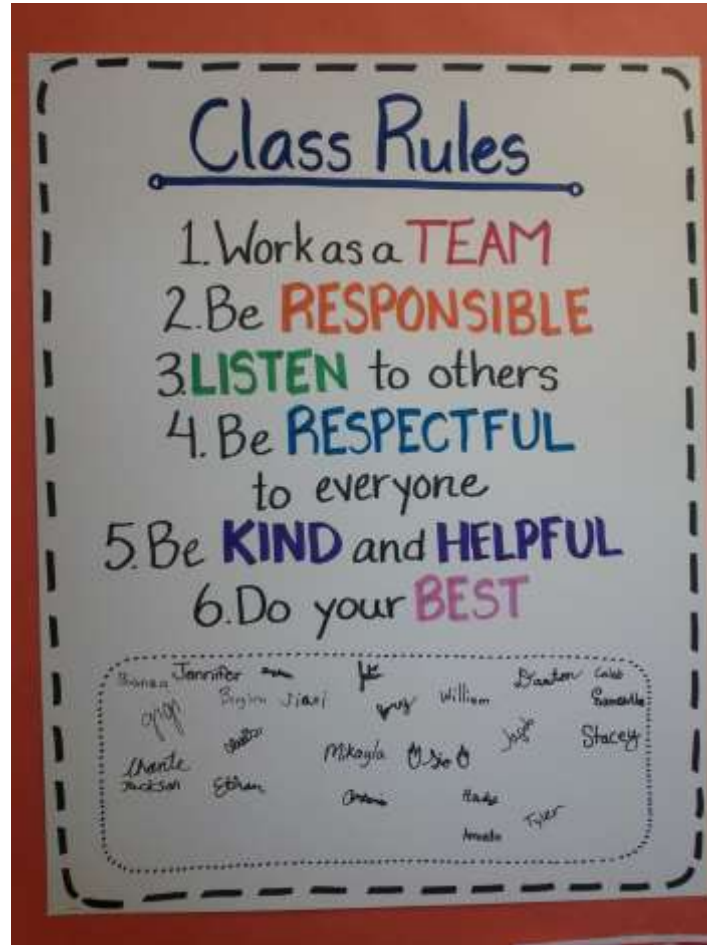 Class Rules
1. Work as a TEAM
2. Be RESPONSIBLE
3. LISTEN to others
4. Be RESPECTFUL
to everyone
5. Be KIND and HELPFUL
6. Do your BEST
Jennifer
William
Caleb
Samantha
Stacey
Mikayla
Chante
Jackson
Ethan
Tyler